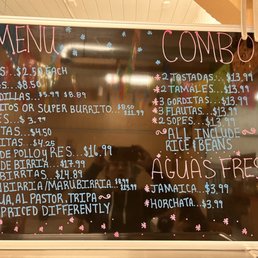 MENU
$2.50 EACH
$8.50
DILLAS...$5.99 $8.89
ITOS OR SUPER BURRITO...$8.50 $11.99
$3.99
$4.50
ITAS $4.25
DE POLLO Y RES...$16.99
DE BIRRIA...$17.99
BIRRIAS $14.89
UA, AL PASTOR, TRIPA
PRICED DIFFERENTLY
COMBO
* 2 TOSTADAS...$13.99
* 2 TAMALES...$13.99
* 3 GORDITAS...$13.99
* 3 FLAUTAS...$13.99
* 2 SOPES...$13.99
ALL INCLUDE
RICE & BEANS
AGUAS FRES
* JAMAICA...$3.99
* HORCHATA...$3.99